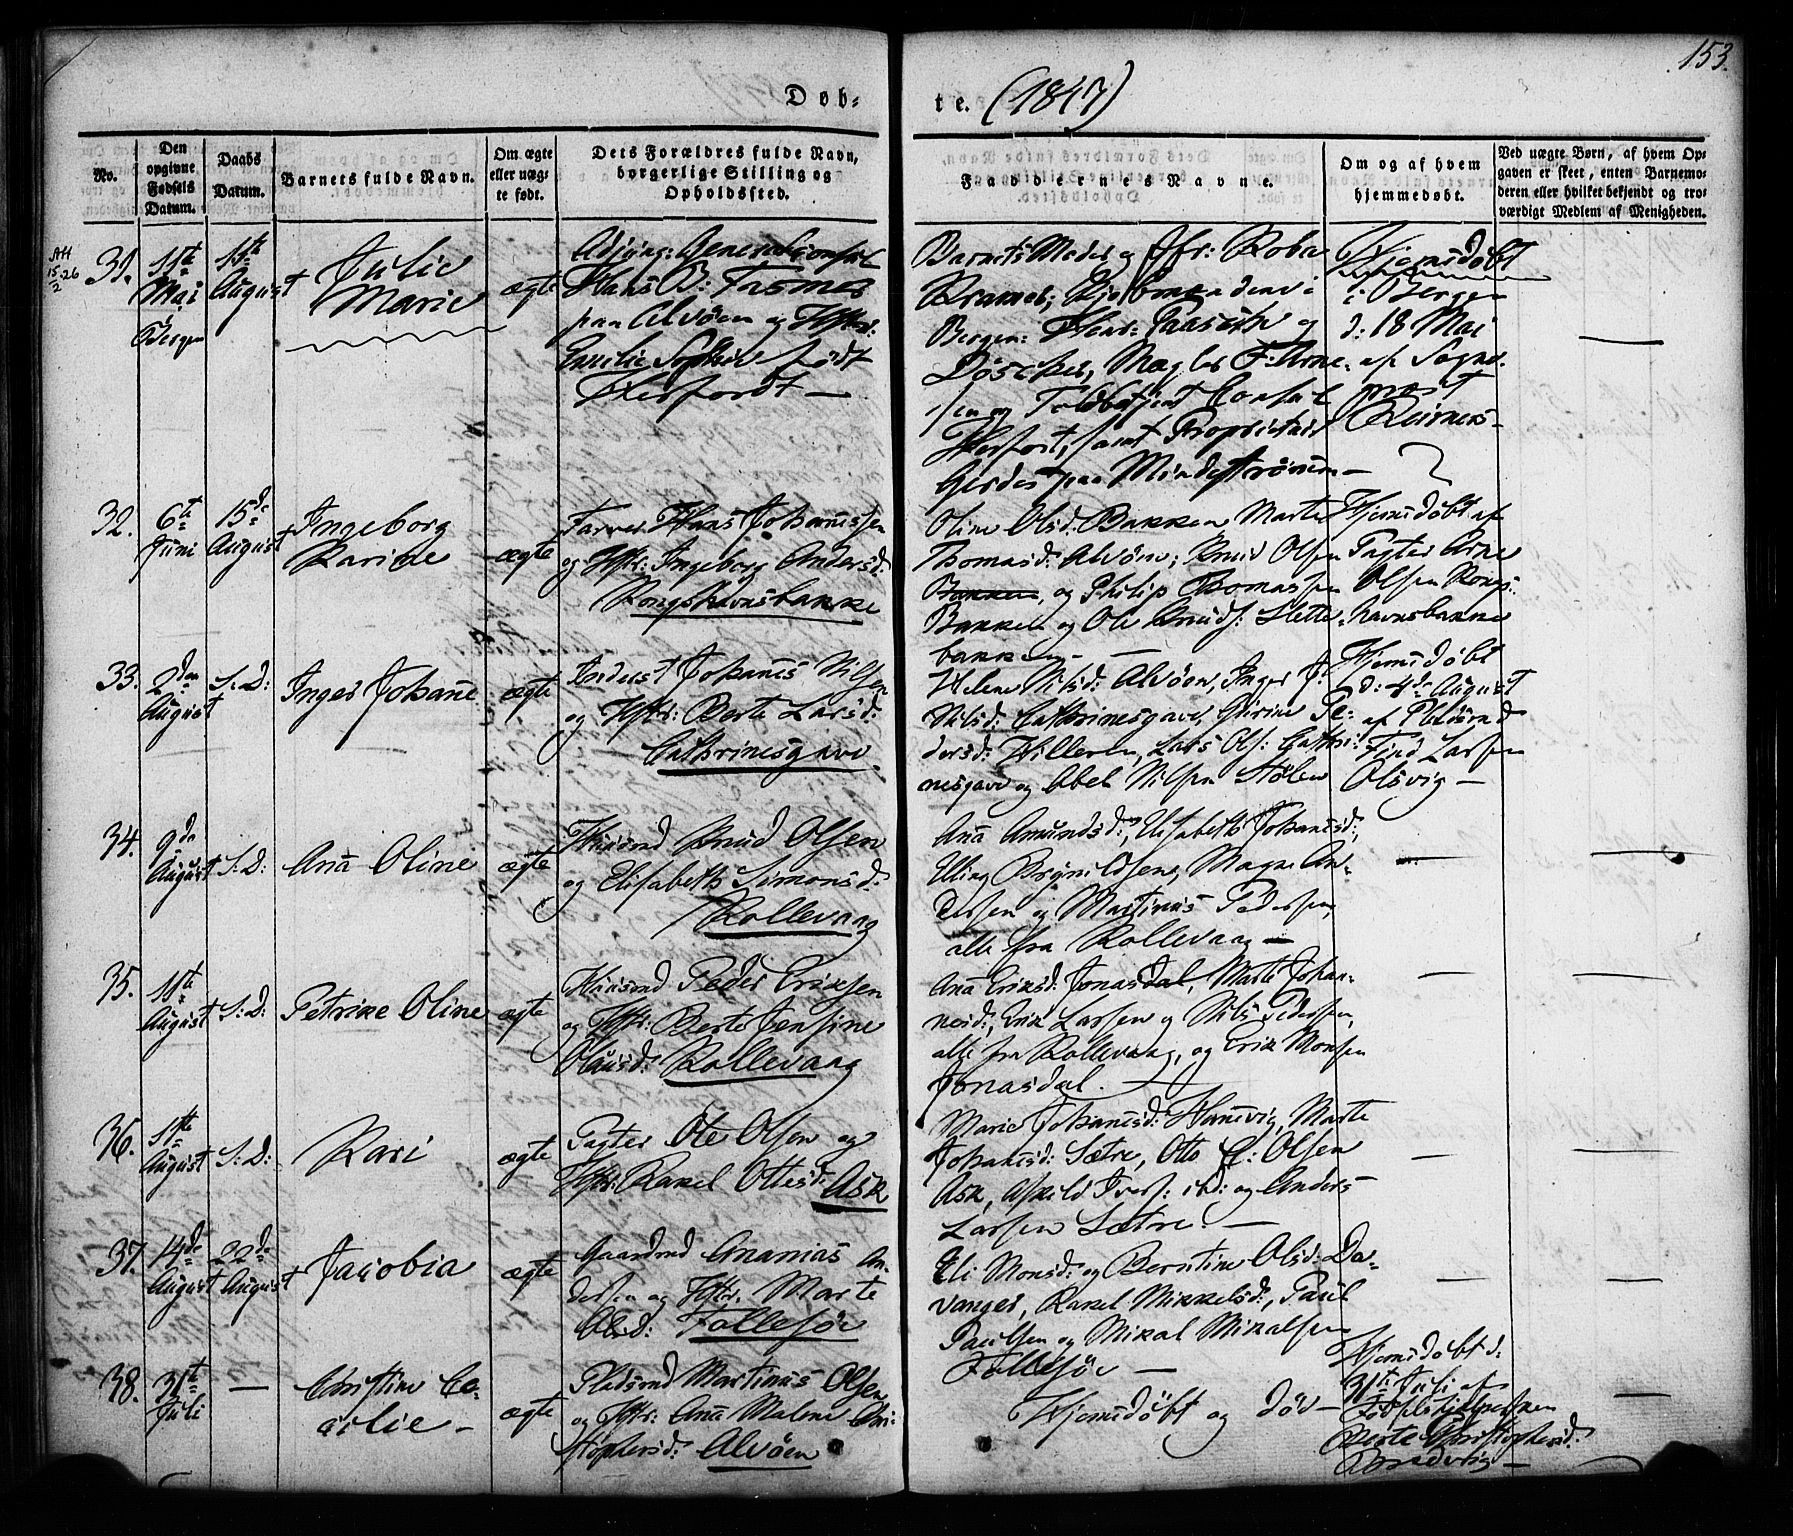 153.
Døb=
te. (1847)
No.
Den opgivne Fødsels Datum.
Daabs Datum.
Barnets fulde Navn.
Om ægte eller uæg=
te født.
Dets Forældres fulde Navn,
borgerlige Stilling og
Opholdssted.
Faddernes Navne.
Om og af hvem
hjemmedøbt.
Ved uægte Børn, af hvem Op=
gaven er skeet, enten Barnemo=
deren eller hvilket bekjendt og tro=
værdigt Medlem af Menigheden.
AH
15/2 26
31.
11te
Mai
Bergen
15te
August
Julie
Marie
ægte
General Consul
Hans B: Fasmer
paa Alvøen og Hstr:
Emilie Sophie født
Herfordt —
Barnets Moder og Jfr:
Kramer; i
Bergen: og
Døscher, Mægler F: Arne-
sen og Consul
Herfort, samt Proprietair
Gerdes paa Mindestrømmen —
Hjemdøbt
i Bergen
d: 18 Mai
af Sogne-
præst
Reimers —
32.
6te
Juni
15de
August
Ingeborg
Karine
ægte
Farver Hans Johannessen
og Hstr: Ingeborg Andersd:
Kongshavnsbakke
Oline Olsd: Bakken Marte
Thomasd: Alvøen; Knud Olsen
Bakken, og Philip Thomassen
Bakken og Ole Knuds: Slette-
bakken —
Hjemdøbt af
Pagter Arne
Olsen Kongs-
havnsbakke
33.
2den
August
S: D:
Inger Johanne
ægte
Inderst Johannes Nilsen
og Hstr: Berte Larsd:
Cathrinesgave
Helene Nilsd: Alvøen, Inger J:
Nilsd: Cathrinesgave, Pe-
dersd: Hilleren, Lars Ols: Cathri-
nesgave og Abel Nilsen Stølen
Hjemdøbt
d: 4de August
af Pladsmd
Find Larsen
Olsvig —
34.
9de
August
S: D:
Anna Oline
ægte
Huusmd Knud Olsen
og Elisabeth Simonsd:
Rollevaag
Anna Amundsd:, Elisabeth Johannesd:,
Elling Brynildsen, Magne An-
dersen og Martinus Pedersen,
alle fra Rollevaag —
35.
11te
August
S: D:
Petrine Oline
ægte
Huusmd Peder Eriksen
og Hstr: Berte Jensine
Olausd: Rollevaag
Anna Eriksd: Jonasdal, Marte Johan-
nesd:, Erik Larsen og Nils Pedersen,
alle fra Rollevaag, og Erik Monsen
Jonasdal.
36.
11te
August
S: D:
Kari
ægte
Pagter Ole Olsen og
Hstr: Rakel Ottesd: Ask
Marie Johannesd: Hanevig, Marte
Johannesd: Sætre, Otto E: Olsen
Ask, Askild Ivers: ibd: og Anders
Larsen Sætre. —
37.
14de
August
22de
August
Jacobia
ægte
Gaardmd Ananias An-
dersen og Hstr. Marte
Olsd: Follesøe
Eli Monsd: og Berntine Olsd: Da-
vanger, Rakel Mikkelsd:, Paul
Paulsen og Mikal Mikalsen
Follesøe —
38.
31te
Juli
—
Christine Ce-
cilie —
ægte
Pladsmd Martinus Olsen
og Hstr: Anna Malene Chri-
stophersd: Alvøen
Hjemdøbt og død —
Hjemdøbt d:
31te Juli af
Fødselshjelpersken
Berte Christophersd:
Brædvig —